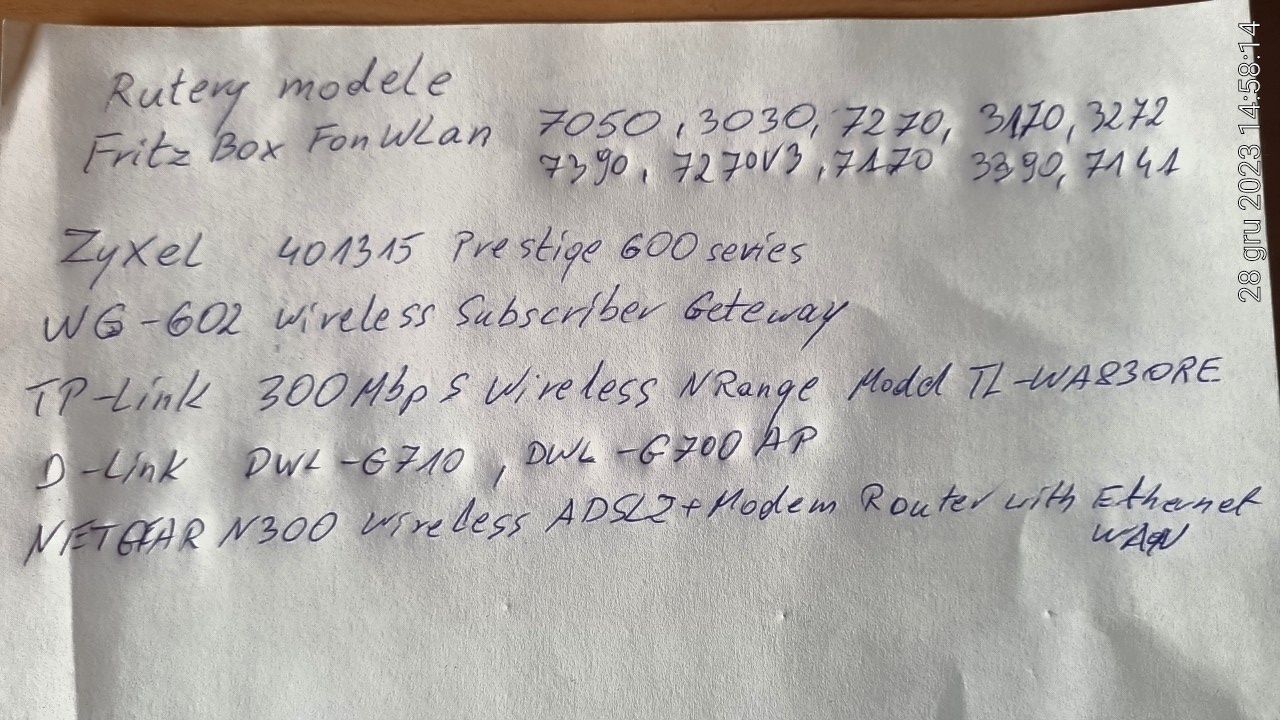 Rutery modele
Fritz Box FonWLan 7050, 3030, 7270, 3170, 3272
7390, 7270V3, 7170 3390, 7141
ZyXel 401315 Prestige 600 series
WG-602 Wireless Subscriber Geteway
TP-Link 300Mbps Wireless NRange Model TL-WA830RE
D-Link DWL-G710, DWL-G700AP
NETGEAR N300 Wireless ADSL2+Modem Router with Ethernet
WAN
28 gru 2023 14:58:14